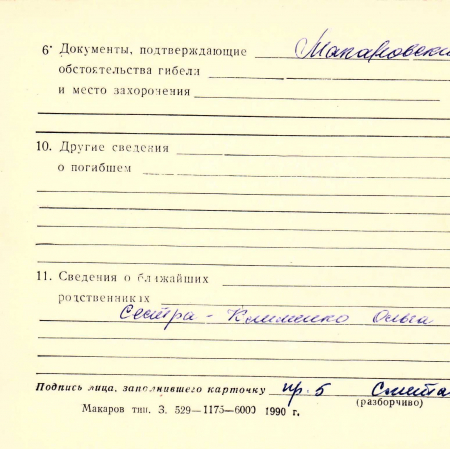 6* Документы, подтверждающие Макаровски
обстоятельства гибели
и место захоронения
10. Другие сведения
о погибшем
11. Сведения о ближайших
родственниках
Сестра - Клименко Ольга
Подпись лица, заполнившего карточку пр. 5
(разборчиво)
Макаров тип. З. 529—1175—6000 1990 г.